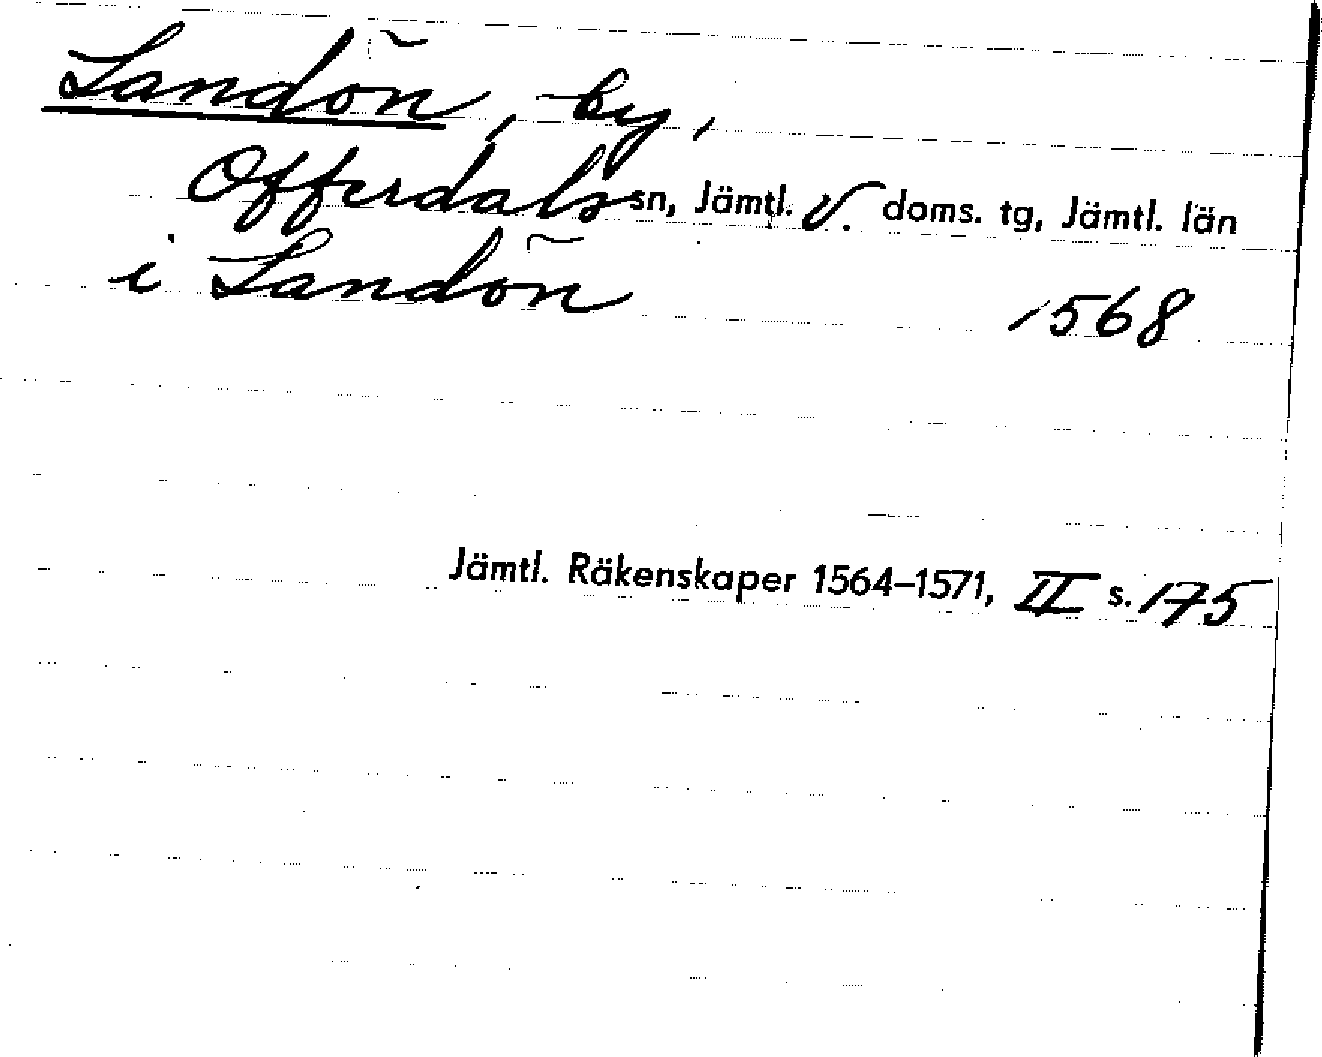 Landön, by,
Offerdals sn, Jämtl. v. doms. tg, Jämtl. län
i Landön 1568
Jämtl. Räkenskaper 1564–1571, II s. 175